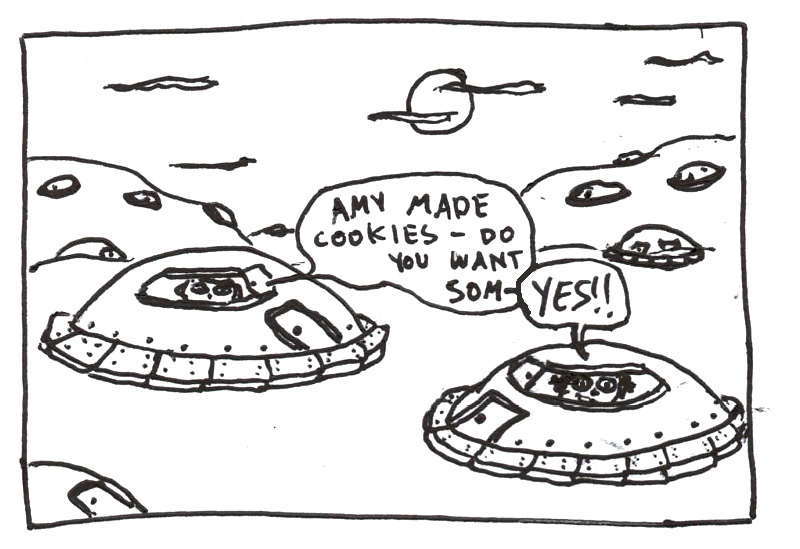 AMY MADE
COOKIES - DO
YOU WANT
SOM-
YES!!